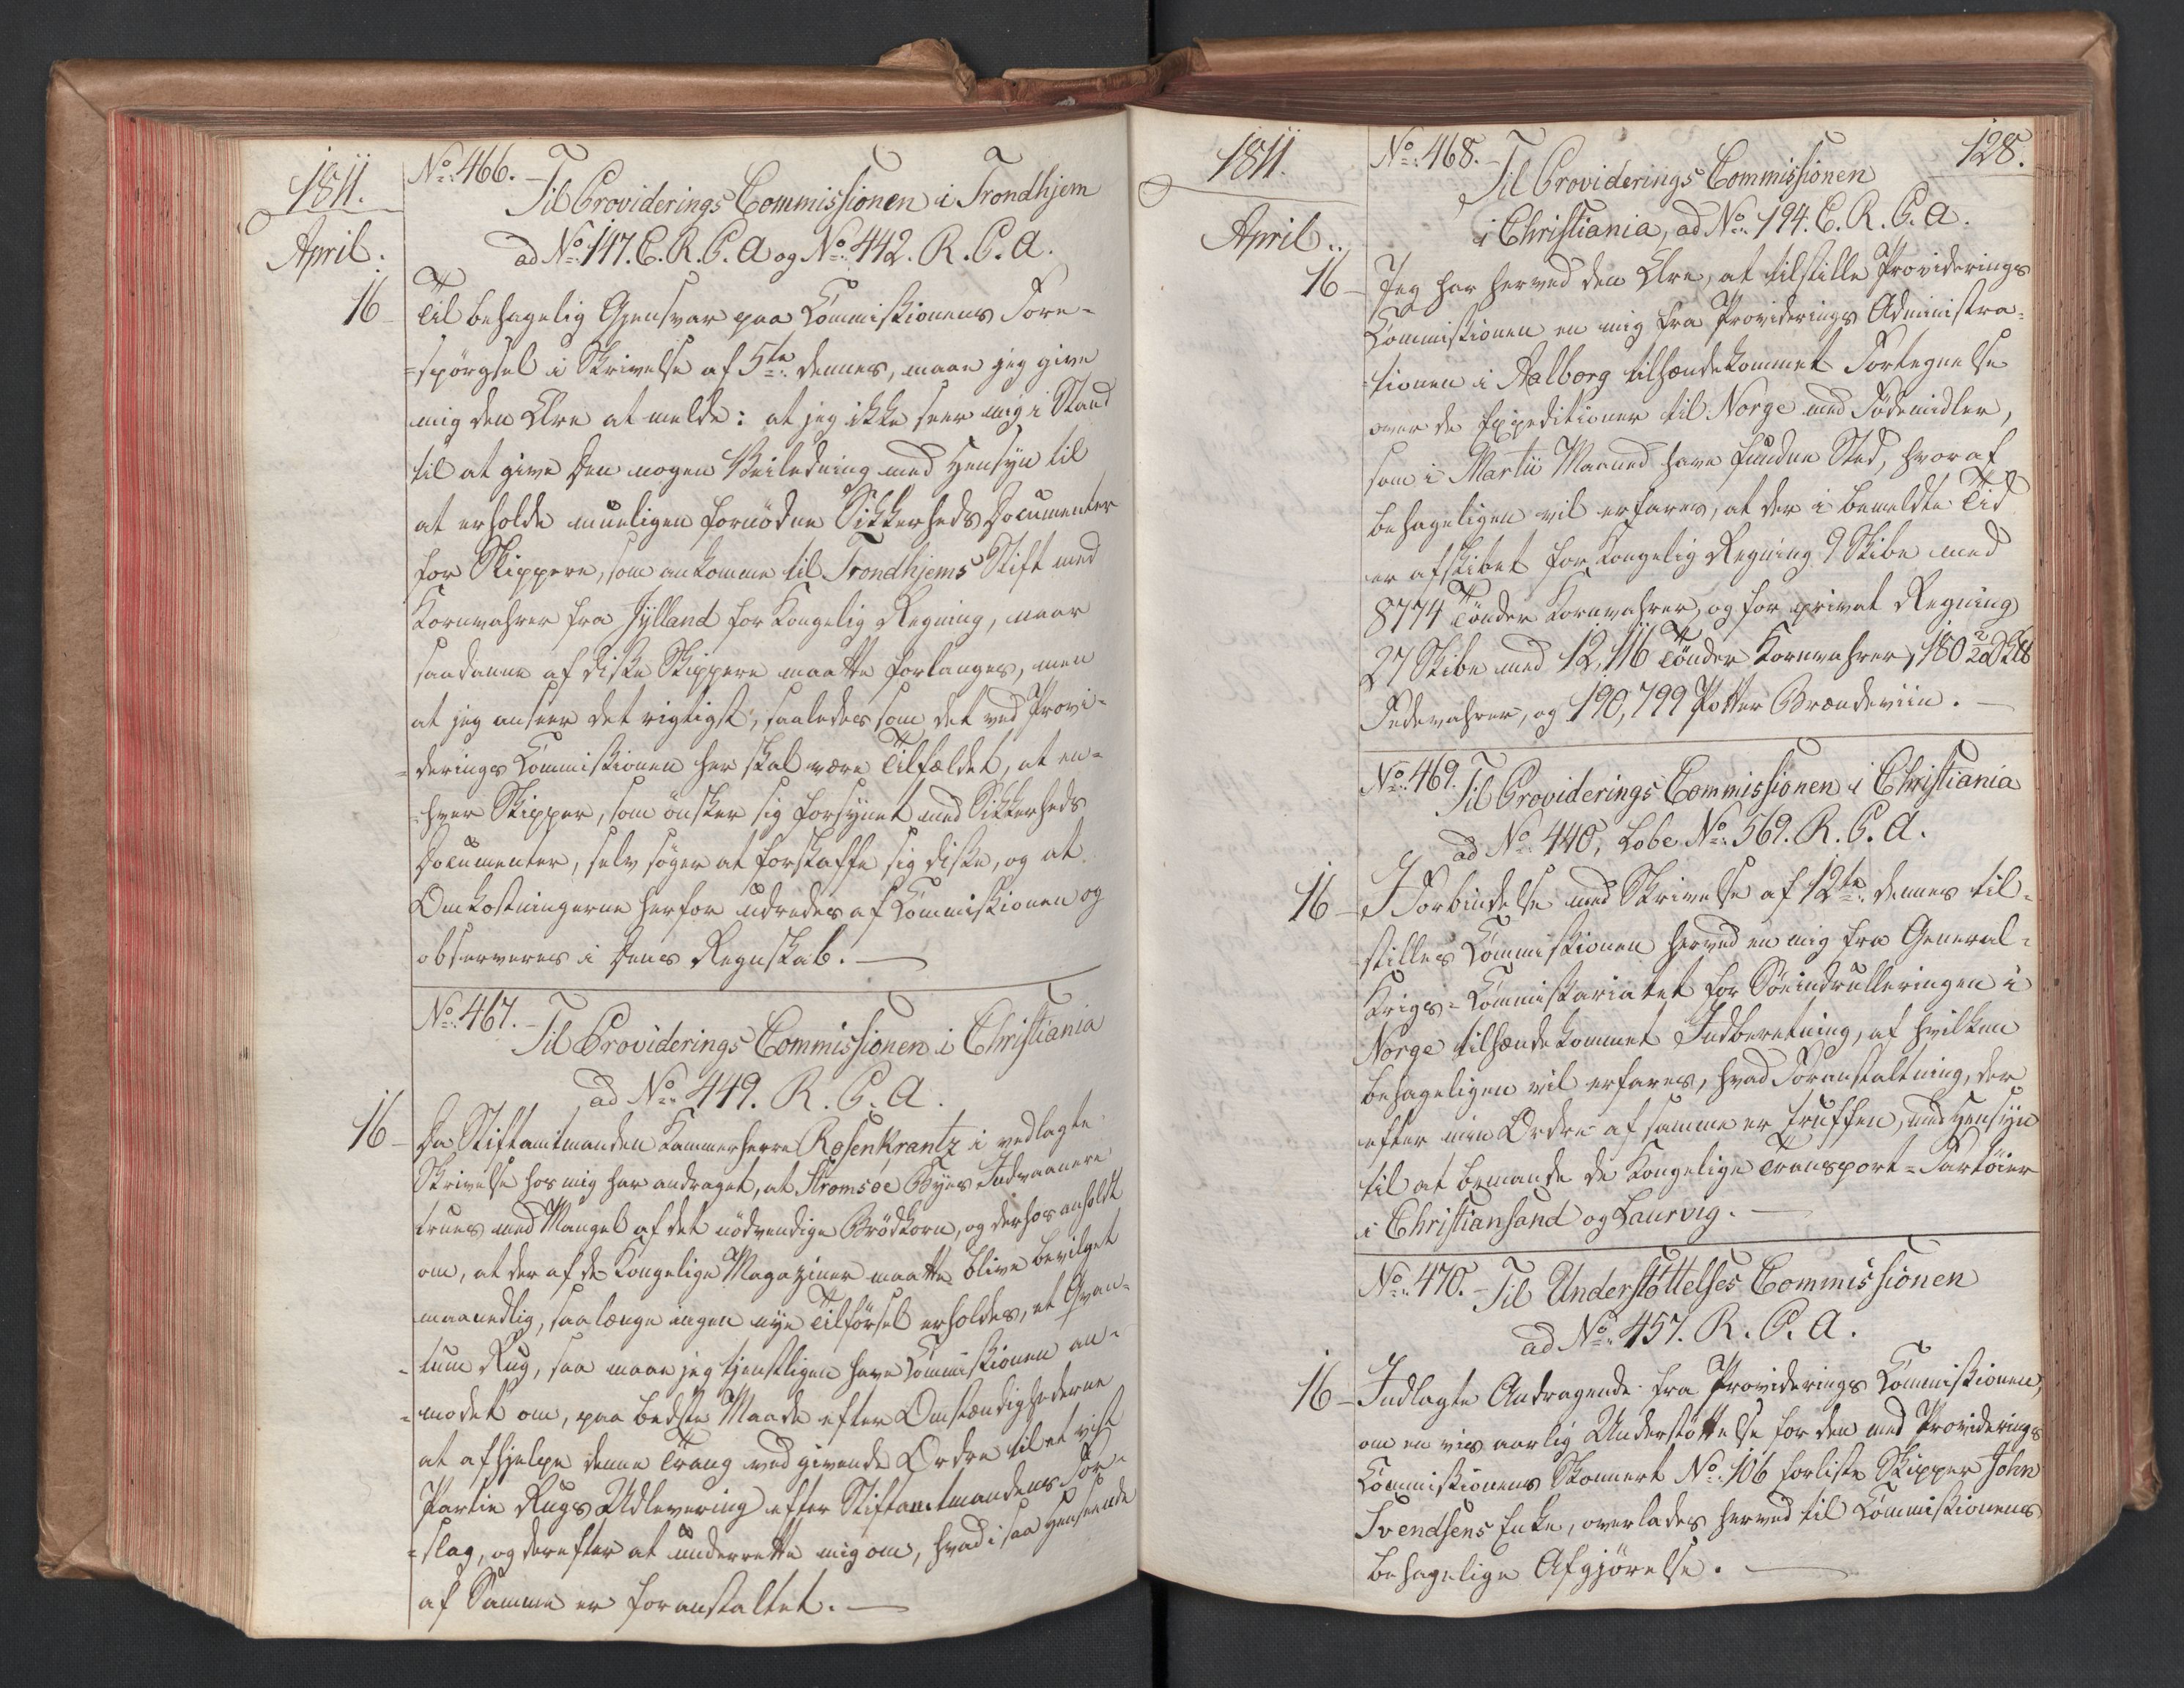 1811.
April.
No: 466.
Til Providerings Commissionen i Trondhjem
ad No: 147. C. R. P. A og No: 442. R. P. A.
16
Til behagelig Gjensvar paa Commissionens Fore-
=spörgsel i Skrivelse af 5te dennes, maae jeg give
mig den Ære at melde: at jeg ikke seer mig i Stand
til at give Den nogen Veiledning med Hensyn til
at erholde mueligen fornödne Sikkerheds Documenter
for Skippere, som ankomme til Trondhjems Stift med
Kornvahrer fra Jylland for Kongelig Regning, naar
saadanne af diße Skippere maatte forlanges, men
at jeg anseer det rigtigst, saaledes som det ved Provi-
=derings Commissionen her skal være Tilfældet, at en-
=hver Skipper, som önsker sig forsynet med Sikkerheds
Documenter, selv söger at forskaffe sig diße, og at
Omkostningerne herfor udredes af Commissionen og
observeres i Dens Regnskab.
No: 467.
Til Providerings Commissionen i Christiania
ad No: 449. R. P. A.
16
Da Stiftamtmanden Kammerherre Rosenkrantz i vedlagte
Skrivelse hos mig har andraget, at Stromsoe Byes Indvaanere
trues med Mangel af det nödvendige Brödkorn, og derhos anholdt
om, at der af de Kongelige Magaziner maatte blive bevilget
maanedlig, saalænge ingen nye Tilförsel erholdes, et Qvan-
=tum Rug, saa maae jeg tjenstligen have Commissionen an-
=modet om, paa bedste Maade efter Omstændighederne
at afhjelpe denne Trang ved givende Ordre til et vist
Partie Rugs Udlevering efter Stiftamtmandens For-
=slag, og derefter at underrette mig om, hvad i saa Henseende
af Samme er foranstaltet.
1811.
128.
April.
No: 468.
Til Providerings Commissionen
i Christiania, ad No: 194. C. R. P. A.
16
Jeg har herved den Ære, at tilstille Providerings
Commissionen en mig fra Providerings Administra-
=tionen i Aalborg tilhændekommet Fortegnelse
over de Expeditioner til Norge med Födemidler,
som i Martii Maaned have fundne Sted, hvoraf
behageligen vil erfares, at der i bemeldte Tid
er afskibet for Kongelig Regning 9 Skibe med
8774 Tönder Kornvahrer, og for privat Regning
27 Skibe med 12,116 Tönder Kornvahrer, 180
Fedevahrer, og 190,799 Potter Brændeviin.
No: 469.
Til Providerings Commissionen i Christiania
ad No: 440, Lobe No: 569. R. P. A.
16
I Forbindelse med Skrivelse af 12te dennes til-
=stilles Commissionen herved en mig fra General-
Krigs-Commissariatet for Söeindrulleringen i
Norge tilhændekommet Indberetning, af hvilken
behageligen vil erfares, hvad Foranstaltning, der
efter min Ordre af samme er truffen, med Hensyn
til at bemande de Kongelige Transport-Fartöier
i Christiansand og Laurvig.
No: 470.
Til Understöttelses Commissionen
ad No: 457. R. P. A.
16
Indlagte Andragende fra Providerings Commissionen,
om en vis aarlig Understöttelse for den med Providerings
Commissionens Skonnert No: 106 forliste Skipper John
Svendsens Enke, overlades herved til Commissionens
behagelige Afgjörelse.